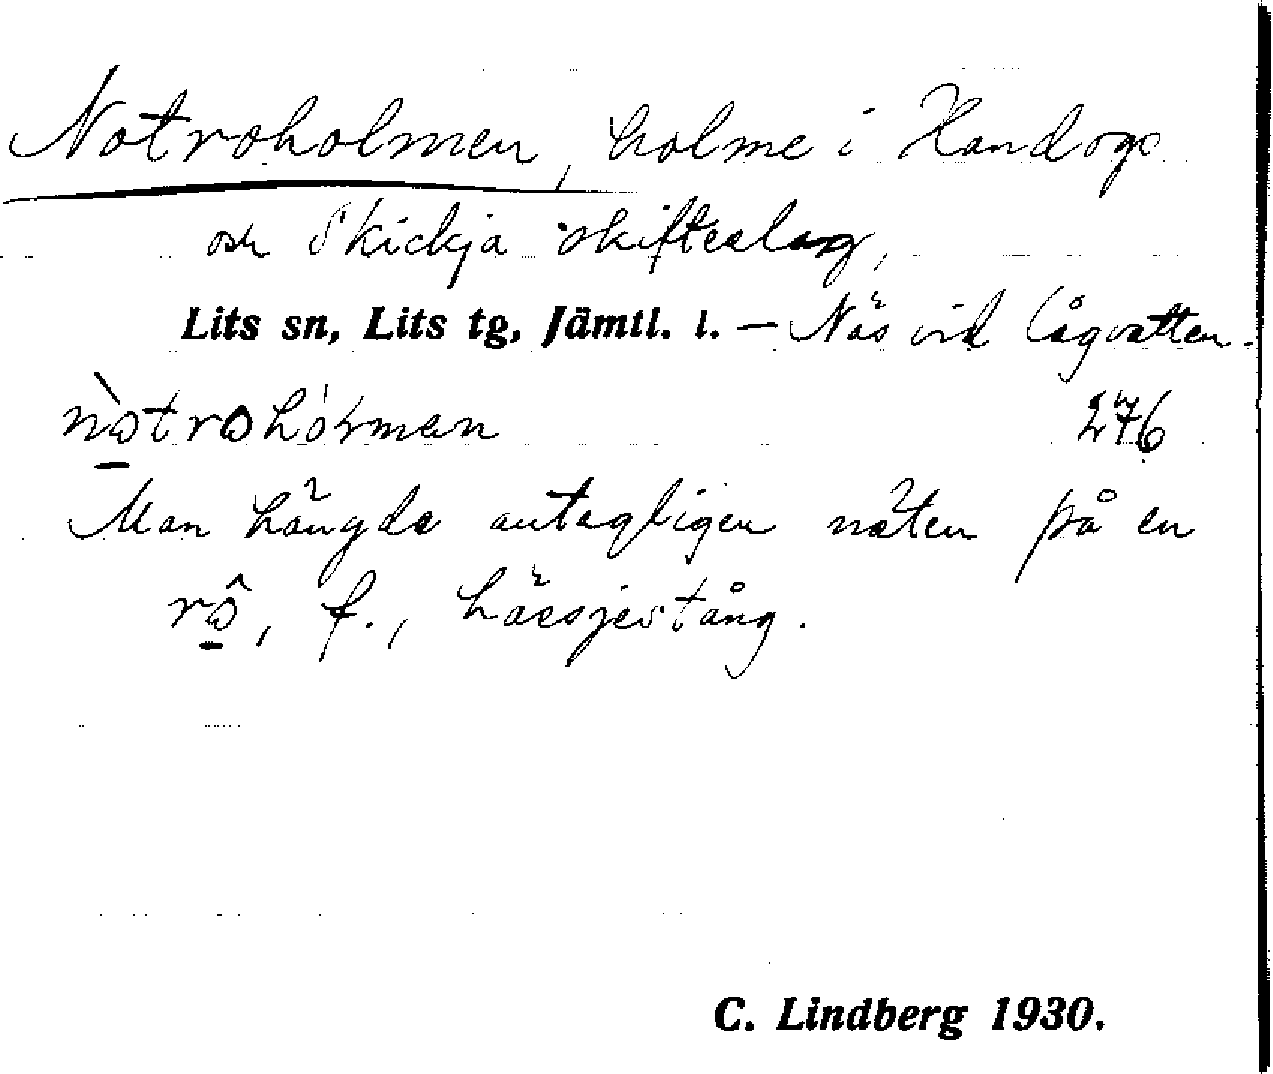 Notroholmen, holme i Handogs
och Skickja skifteslag,
Lits sn, Lits tg, Jämtl. l. — Näs vid lågvatten.
nò̱trohòrman 276
Man hängde antagligen näten på en
rô̱, f., hässjestång.
C. Lindberg 1930.